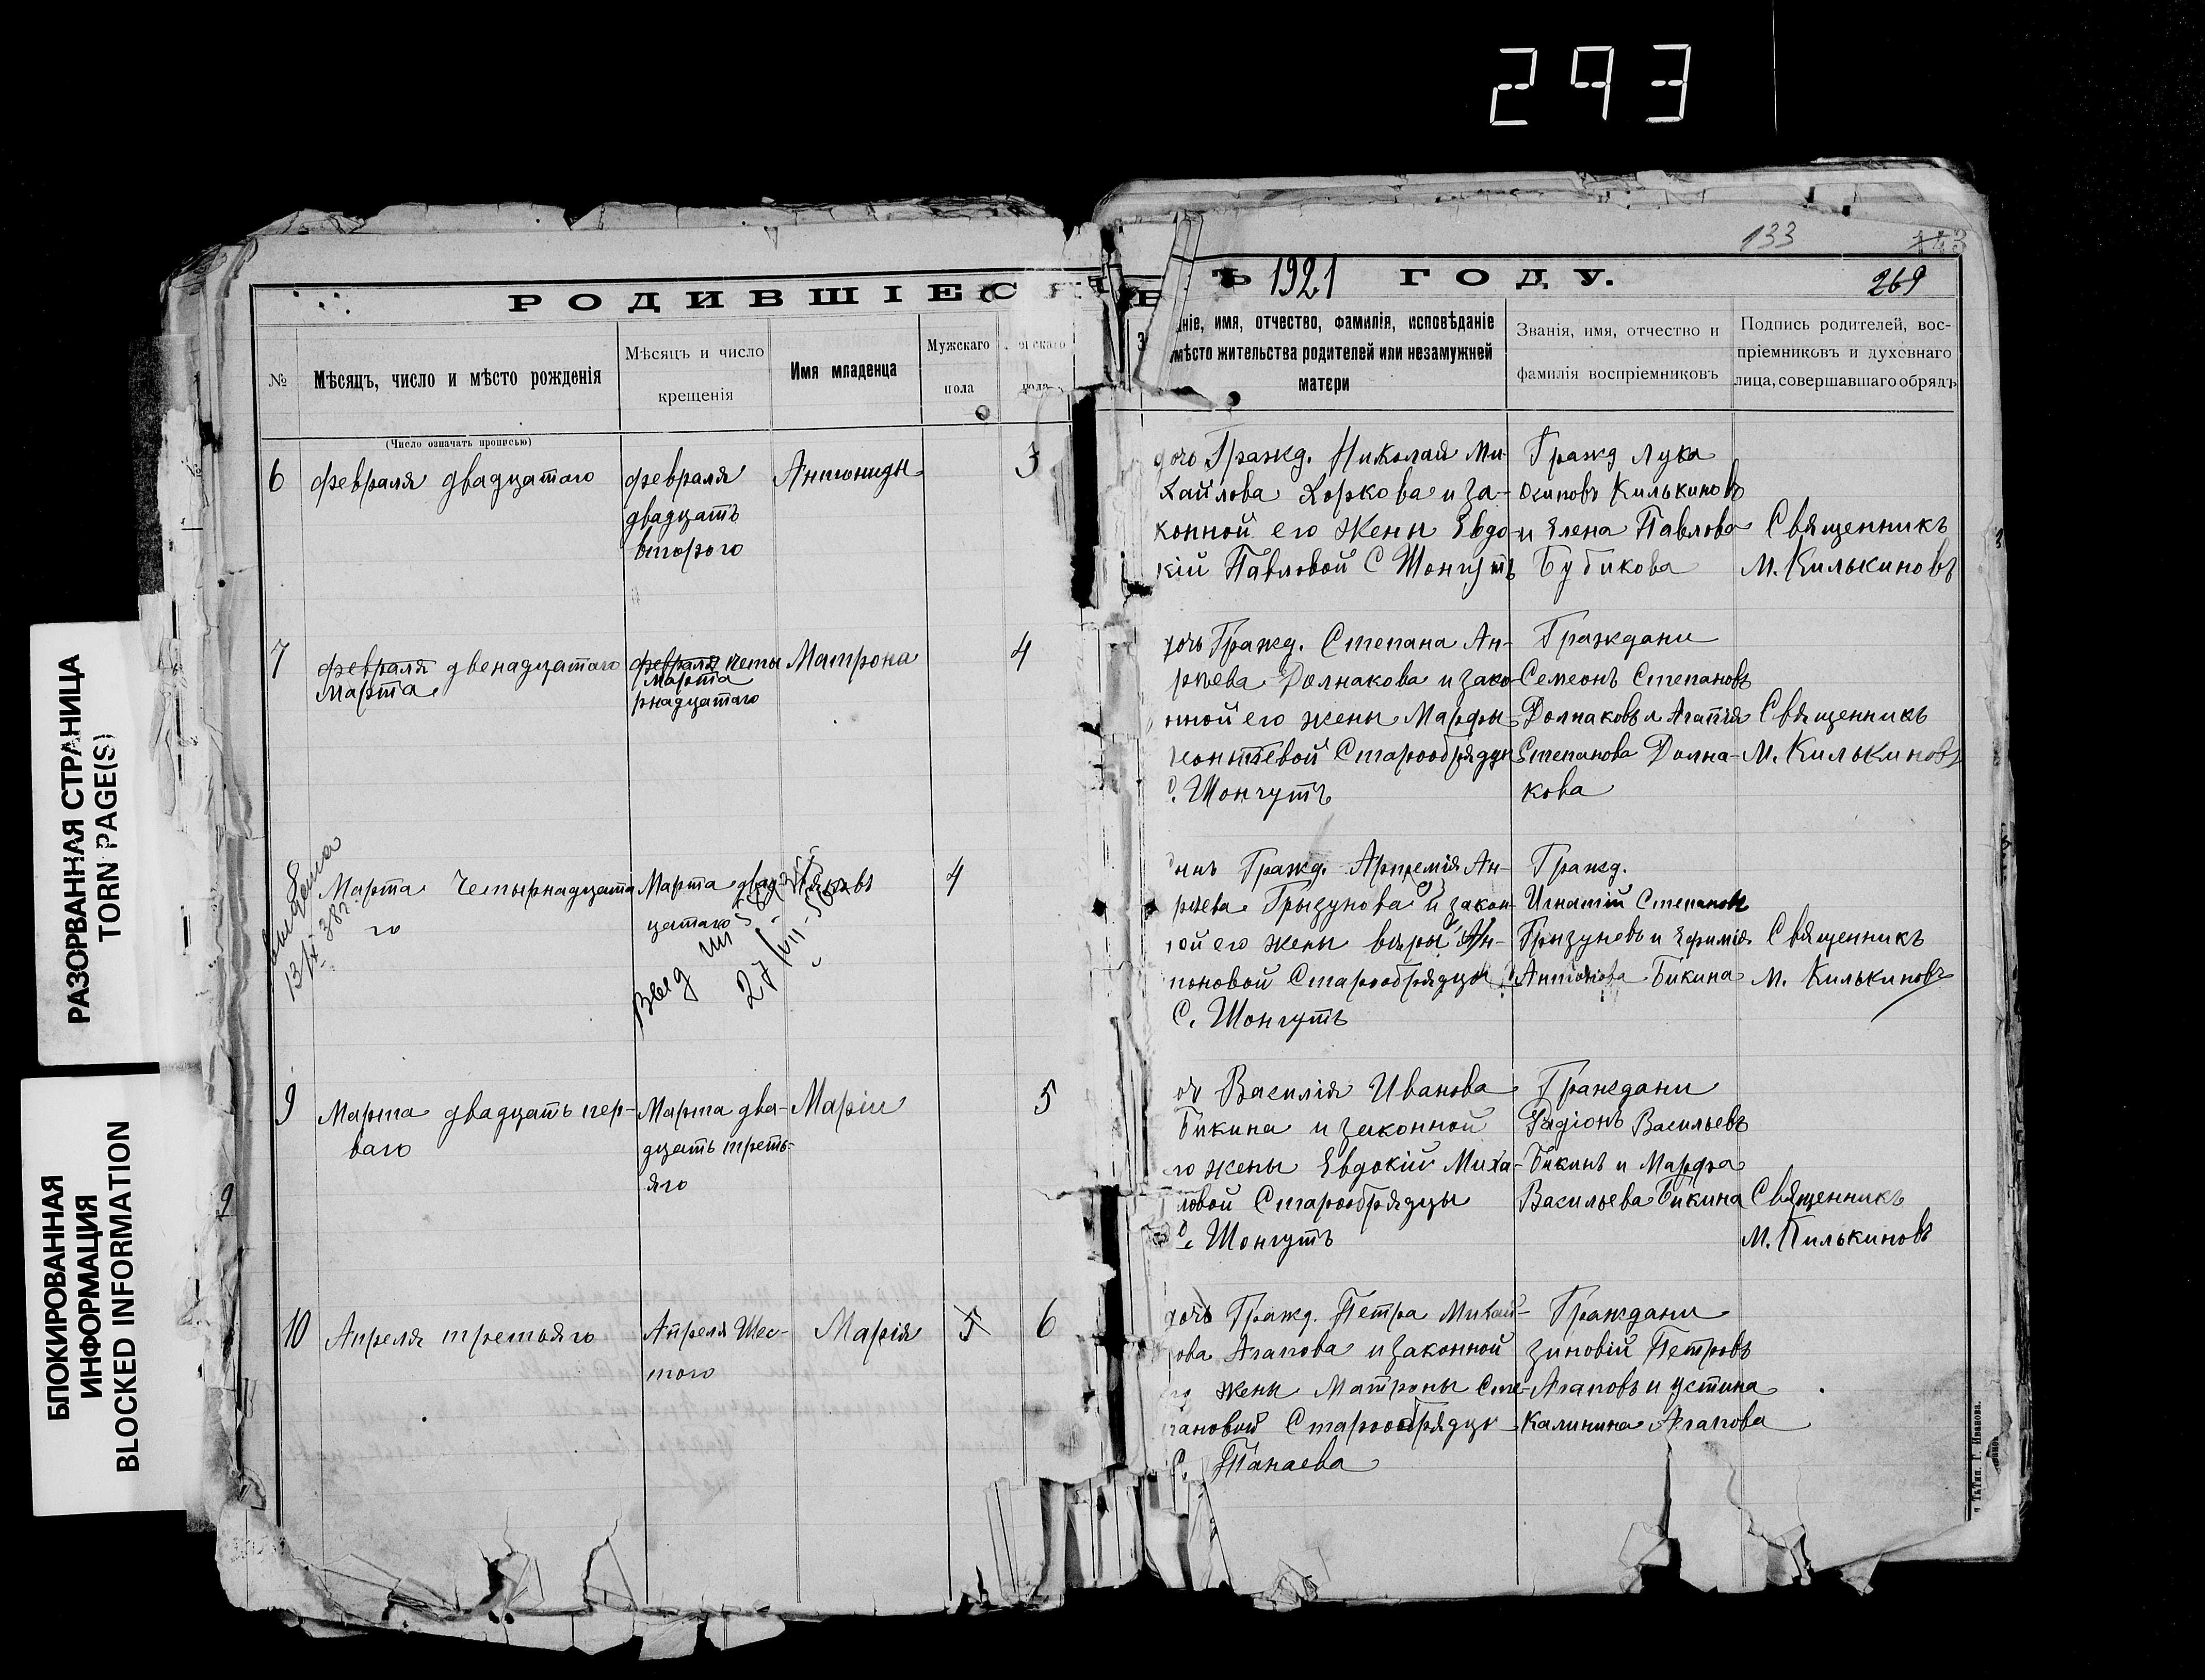 293
РАЗОРВАННАЯ СТРАНИЦА
TORN PAGE(S)
БПОКИРОВАННАЯ
ИНФОРМАЦИЯ
BLOCKED INFORMATION
133
269
РОДИВШІЕС
Ъ 1921 ГОДУ.
№
Мѣсяцъ, число и мѣсто рожденія
(Число означать прописью)
Мѣсяцъ и число
крещенія
Имя младенца
Мужскаго
пола
пола
ніе, имя, отчество, фамилія, исповѣданіе
мѣсто жительства родителей или незамужней
матери
Званія, имя, отчество и
фамилія воспріемниковъ
Подпись родителей, вос-
пріемниковъ и духовнаго
лица, совершавшаго обрядъ
6
февраля двадцатого
февраля
двадцать
второго
Антониды
3
дочь Гражд. Николай Ми-
хайлова Хоркова и за-
конной его жены Евдо-
кіи Павловой С Шонгутъ
Гражд Лука
Осиповъ Килькиновъ
и Елена Павлова
Бубикова
Священникъ
М. Килькиновъ
7
февраля двенадцатаго
Марта
февраля четы
Марта
рнадцатаго
Матрона
4
дочь Гражд. Степана Ан-
рѣева Долнакова и зако-
нной его жены Марфы
еонтѣевой Старообрядцы
С. Шонгутъ
Граждани
Семеонъ Степановъ
Долнаковъ и Агапія
Степанова Долна-
кова
Священникъ
М. Килькиновъ
выдана
13/X 38г.
Марта Четырнадцата
го
Марта двад-
цатаго
выд
27/VII-
4
Гражд. Артемія Ан-
рѣева Грызунова и закон-
ной его жены вѣры Ан-
поновой Старообрядцы
С. Шонгутъ
Гражд.
Игнатій Степановъ
Грызуневъ и Ефимія
Антонова Бикина
Священникъ
М. Килькиновъ
9
Марта двадцать пер-
ваго
Марта два-
дцать треть-
яго
Маріи
5
Василія Иванова
Бикина и законной
го жены Евдокіи Миха-
ловой Старообрядцы
С. Шонгутъ
Граждани
Радіонъ Васильевъ
Бикинъ и Марфа
Васильева Бикина
Священникъ
М. Килькиновъ
10
Апреля третьяго
Апреля Шес-
того
Марія
5
6
дочь Гражд. Петра Михай-
ова Агапова и законной
го жены Матроны Сте-
пановой Старообрядцы
С. Танаева
Граждани
Зиновій Петровъ
Агаповъ и Устина
Калинина Агапова
Тип. Г. Иванова.